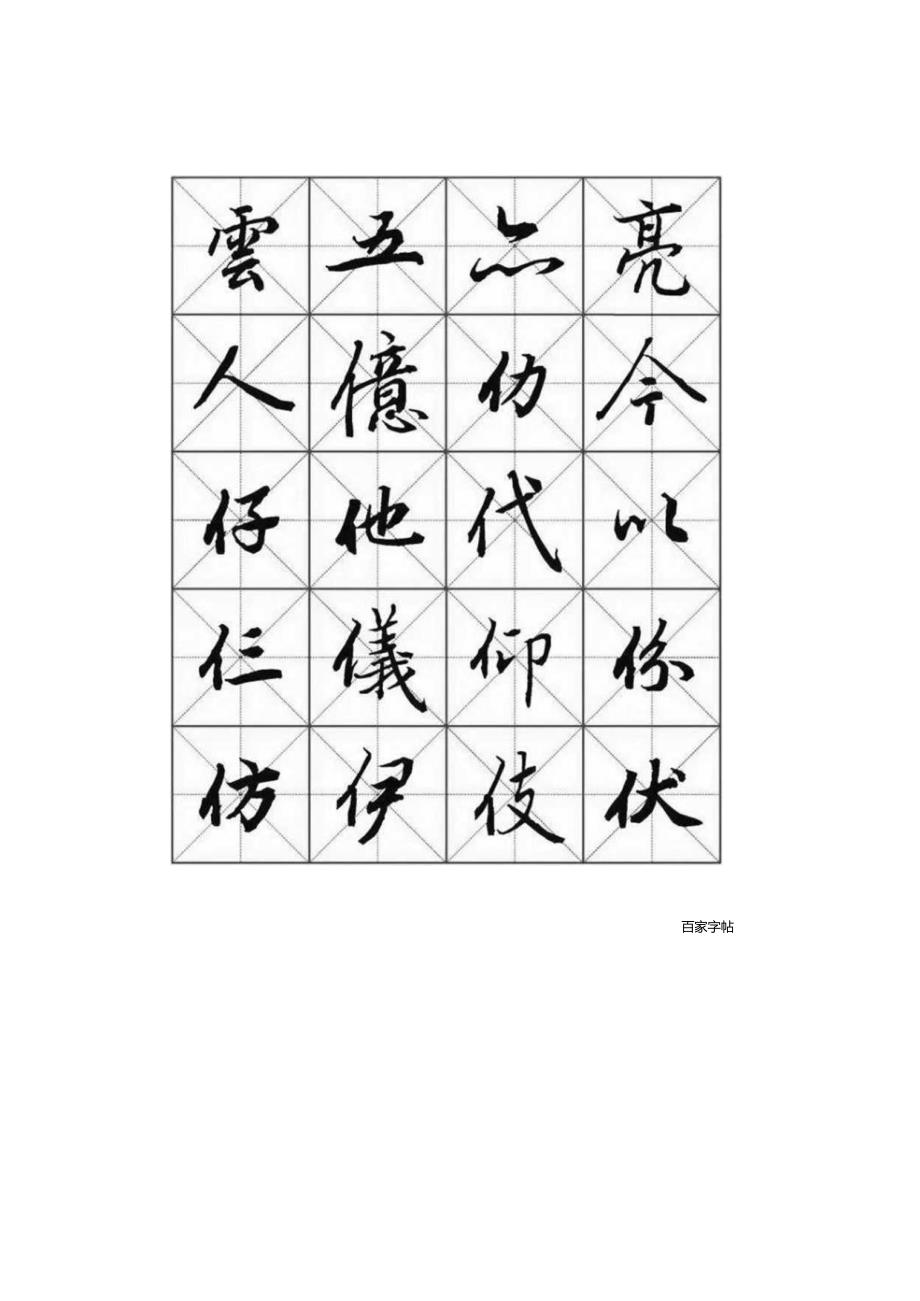 雲五亮
人億仂今
仔他代以
仨儀仰份
仿伊伎伏
百家字帖